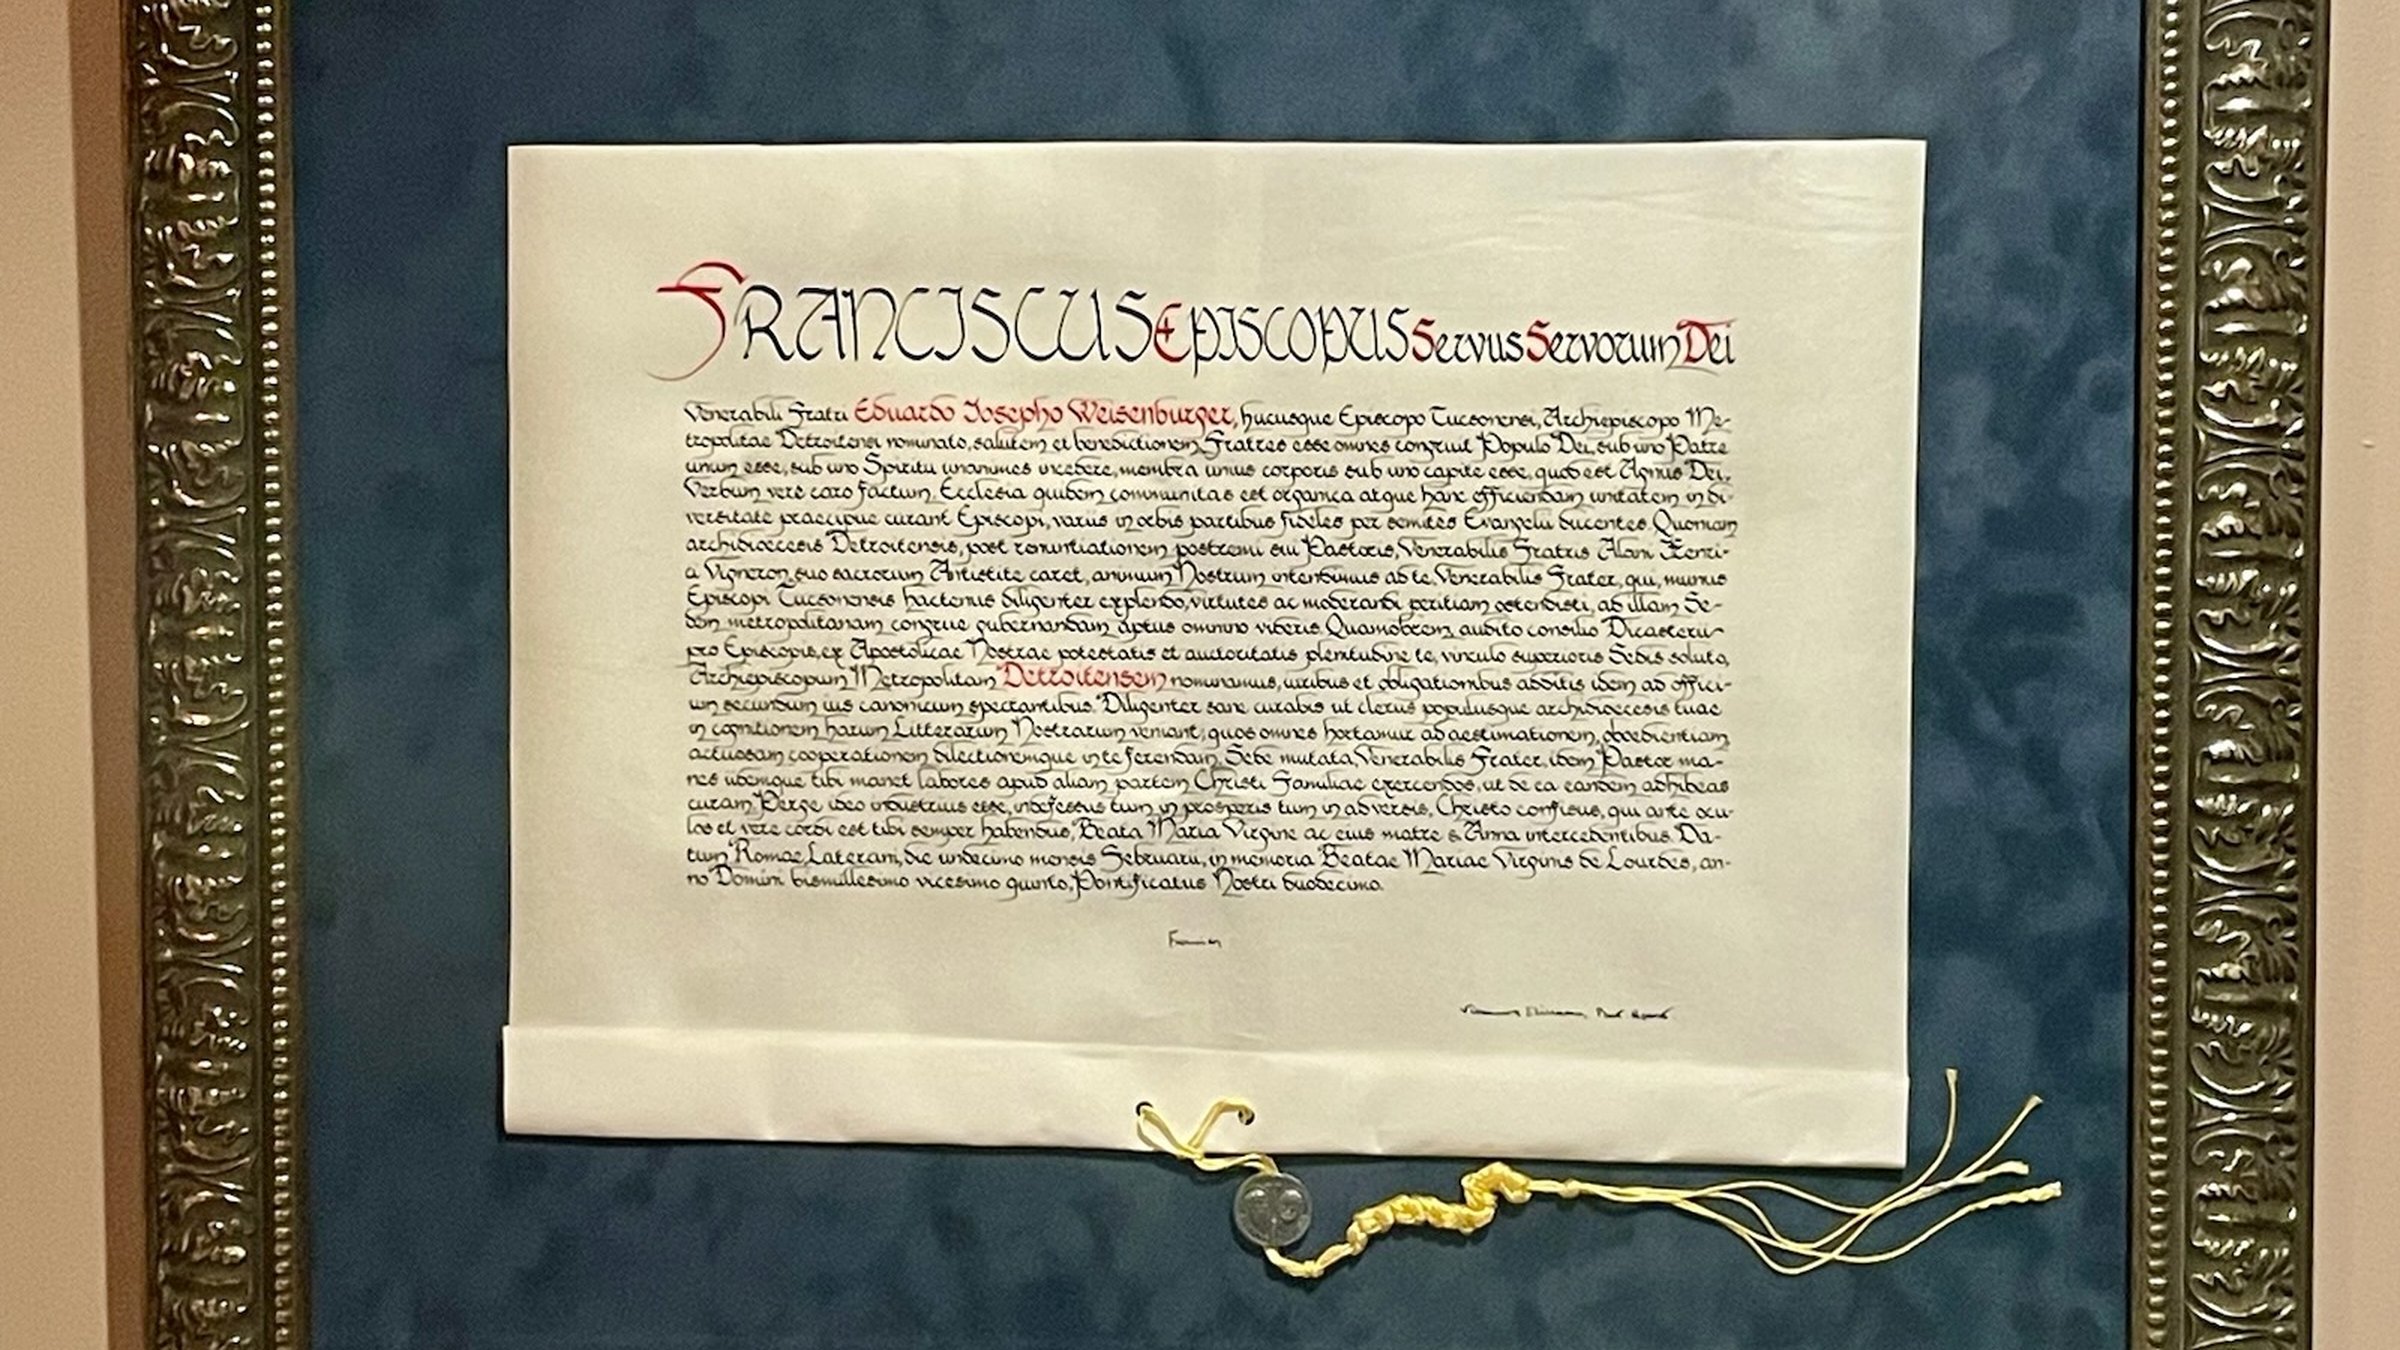 FRANCISCUS EPISCOPUS Servus Servorum Dei
Venerabili Fratri Eduardo Iosepho Weisenburger, hucusque Episcopo Tucsonensi, Archiepiscopo Me-
tropolitae Detroitensi nominato, salutem et benedictionem. Fratres esse omnes congruit Populo Dei, sub uno Patre
unum esse, sub uno Spiritu unanimes incedere, membra unius corporis sub uno capite esse, quod est Agnus Dei,
Verbum vere caro factum. Ecclesia quidem communitas est organica atque hanc efficiendam unitatem in di-
versitate praecipue curant Episcopi, variis in orbis partibus fideles per semites Evangelii ducentes. Quoniam
archidioecesis Detroitensis, post renuntiationem postremi sui Pastoris, Venerabilis Fratris Alani Henri-
ci Vigneron, suo sacrorum Antistite caret, animum Nostrum intendimus ad te, Venerabilis Frater, qui, munus
Episcopi Tucsonensis hactenus diligenter explendo, virtutes ac moderandi peritiam ostendisti, ad illam Se-
dem metropolitanam congrue gubernandam aptus omnino videris. Quamobrem, audito consilio Dicasterii
pro Episcopis, ex Apostolicae Nostrae potestatis et auctoritatis plenitudine te, vinculo superioris Sedis soluto,
Archiepiscopum Metropolitam Detroitensem nominamus, iuribus et obligationibus additis idem ad offici-
um secundum ius canonicum spectantibus. Diligenter sane curabis ut clerus populusque archidioecesis tuae
in cognitionem harum Litterarum Nostrarum veniant, quos omnes hortamur ad aestimationem, oboedientiam,
actuosam cooperationem dilectionemque in te ferendam. Sede mutata, Venerabilis Frater, idem Pastor ma-
nes idemque tibi manet labores apud aliam partem Christi Familiae exercendos, ut de ea eandem adhibeas
curam. Perge ideo industrius esse, indefessus tum in prosperis tum in adversis, Christo confisus, qui ante ocu-
los et vere cordi est tibi semper habendus, Beata Maria Virgine ac eius matre s. Anna intercedentibus. Da-
tum Romae, Laterani, die undecimo mensis Februarii, in memoria Beatae Mariae Virginis de Lourdes, an-
no Domini bismillesimo vicesimo quinto, Pontificatus Nostri duodecimo.